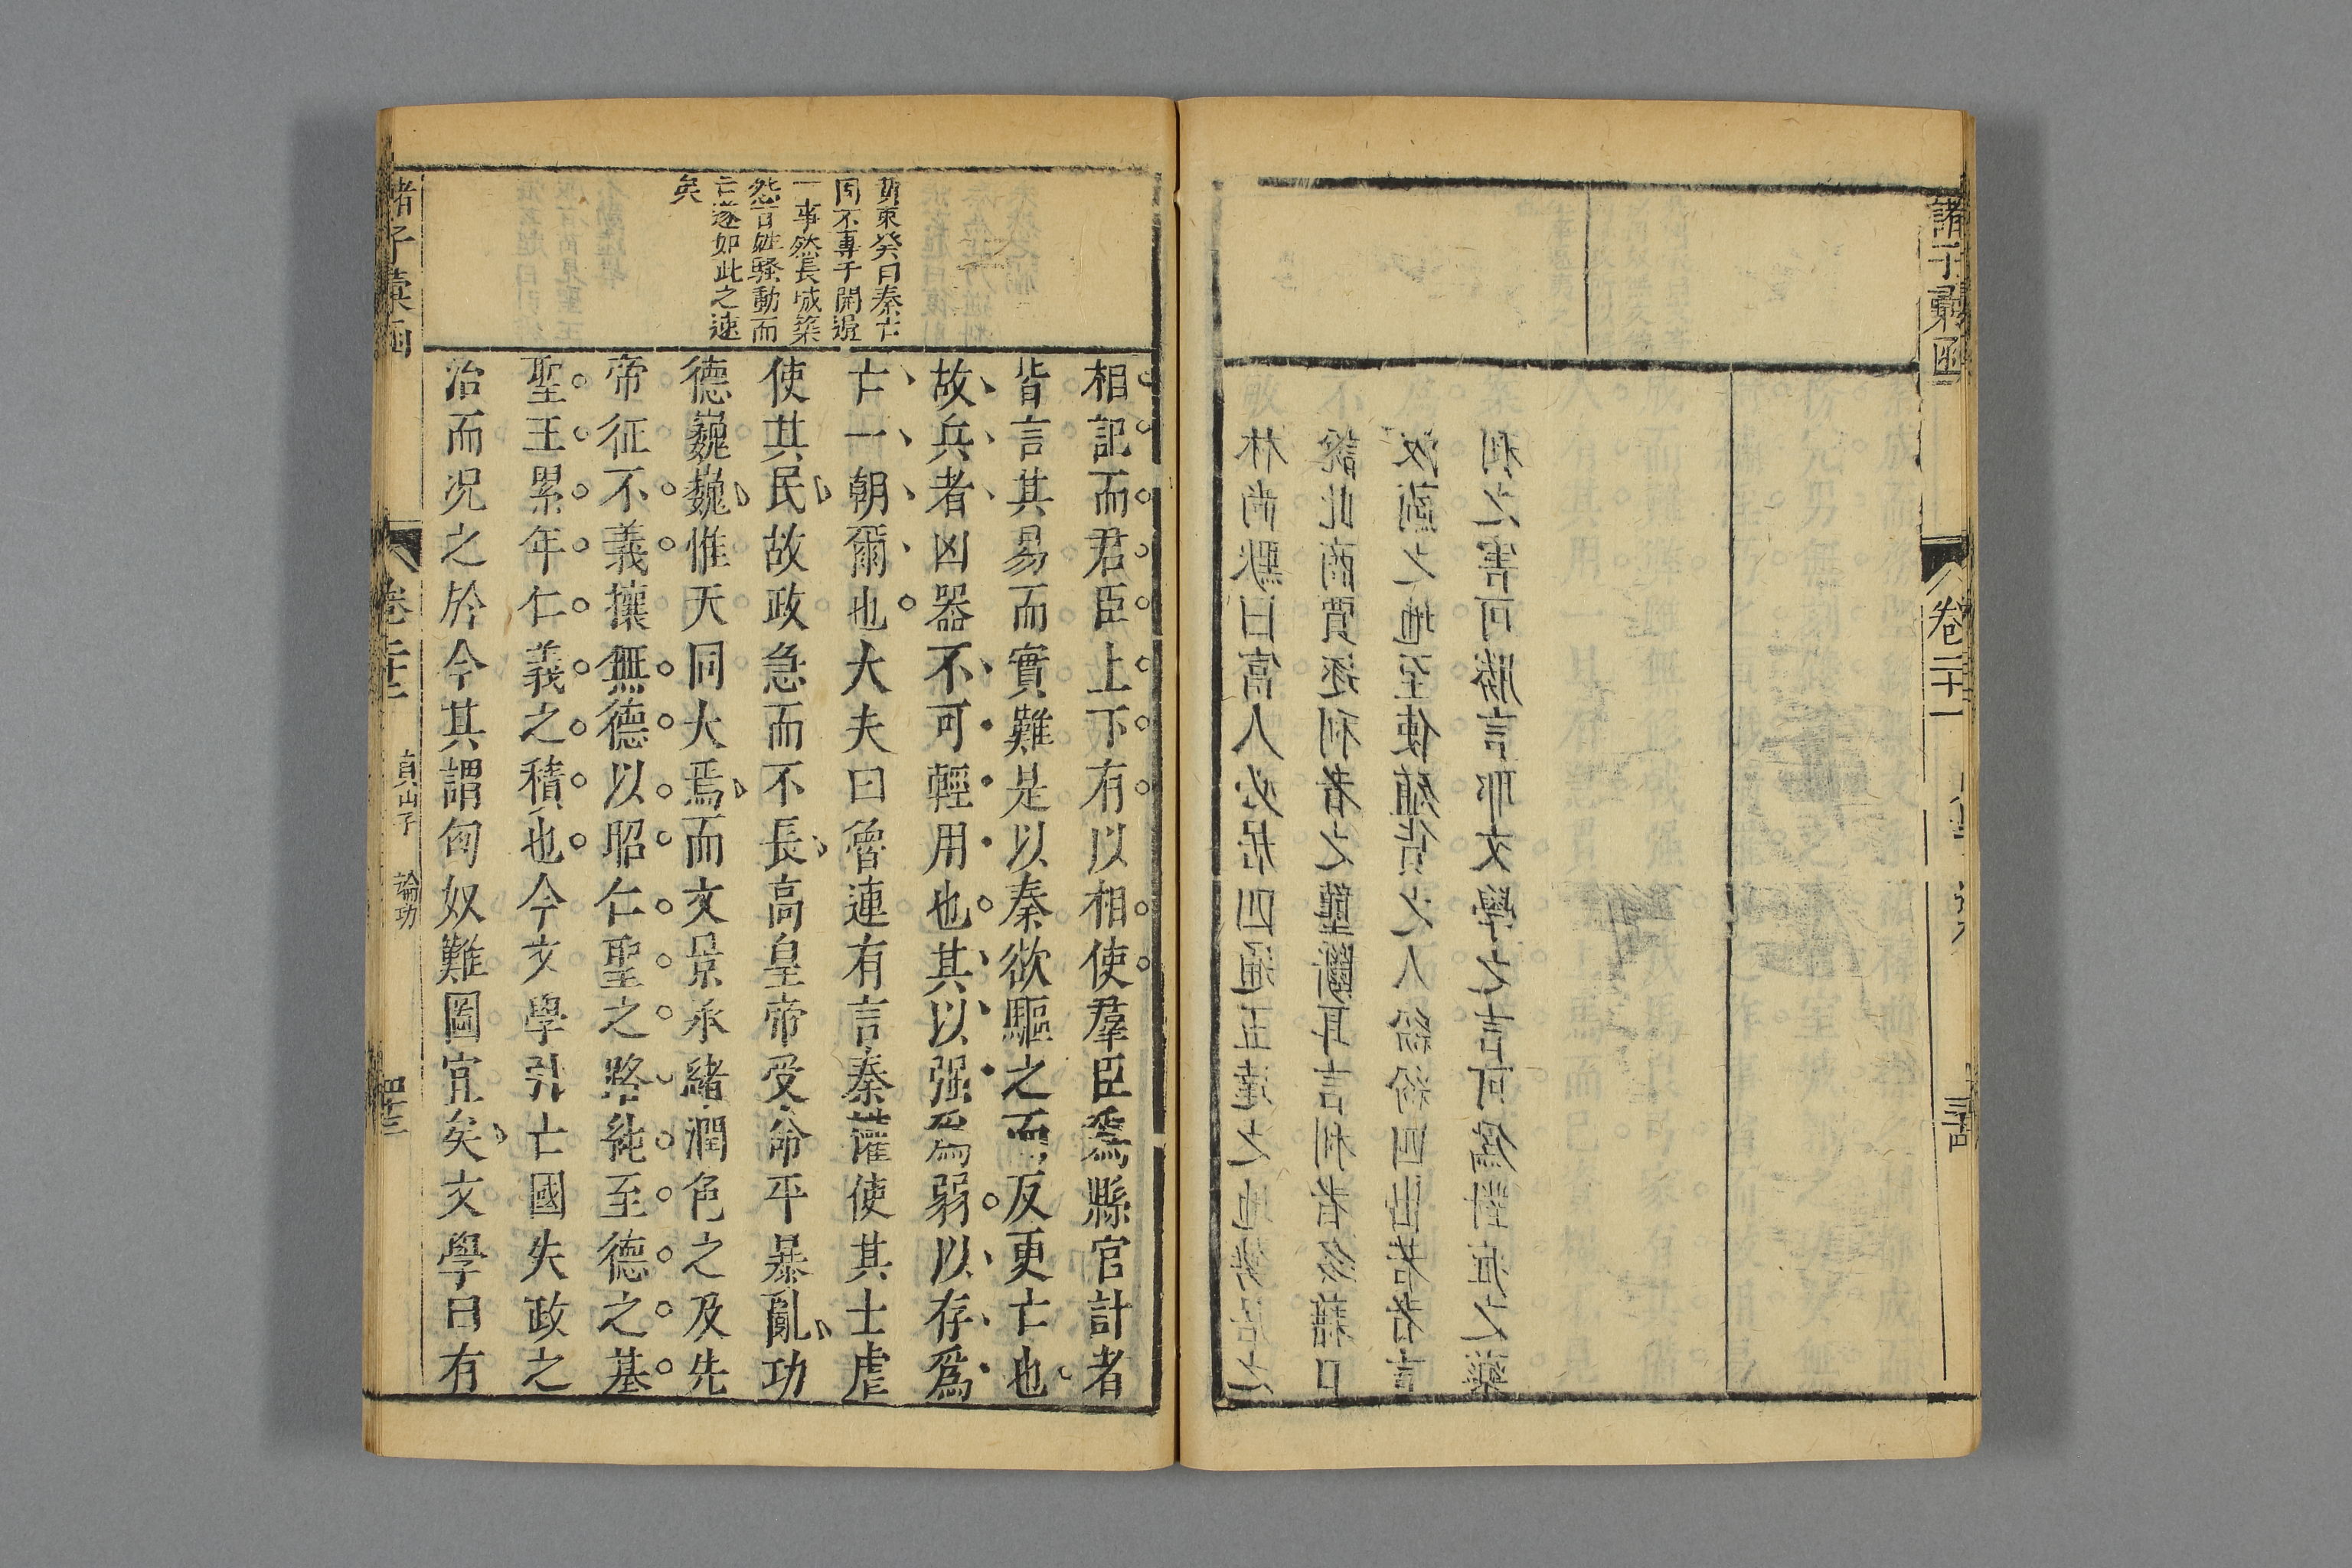 諸子彙函
卷二十一
林尚默曰富人必居四通五達之地
說此商賈逐利者之壟斷耳言利者多藉口
之地至使殖貨之人紛紛四出若者言
利之害可勝言耶文學之言可爲對症之藥
黃東癸曰秦亡
固不專于開邊
一事然長城築
怨百姓騷動而
亡遂如此之速
矣
相記而君臣上下有以相使羣臣爲縣官計者
皆言其易而實難是以秦欲驅之而反更亡也
故兵者凶器不可輕用也其以强爲弱以存爲
亡一朝爾也大夫曰魯連有言秦權使其士虐
使其民故政急而不長高皇帝受命平暴亂功
德巍巍惟天同大焉而文景承緒潤色之及先
帝征不義攘無德以昭仁聖之路純至德之基
聖王累年仁義之積也今文學引亡國失政之
治而况之於今其謂匈奴難圖宜矣文學曰有
諸子彙函
卷二十二
貞山子
論功
四十三